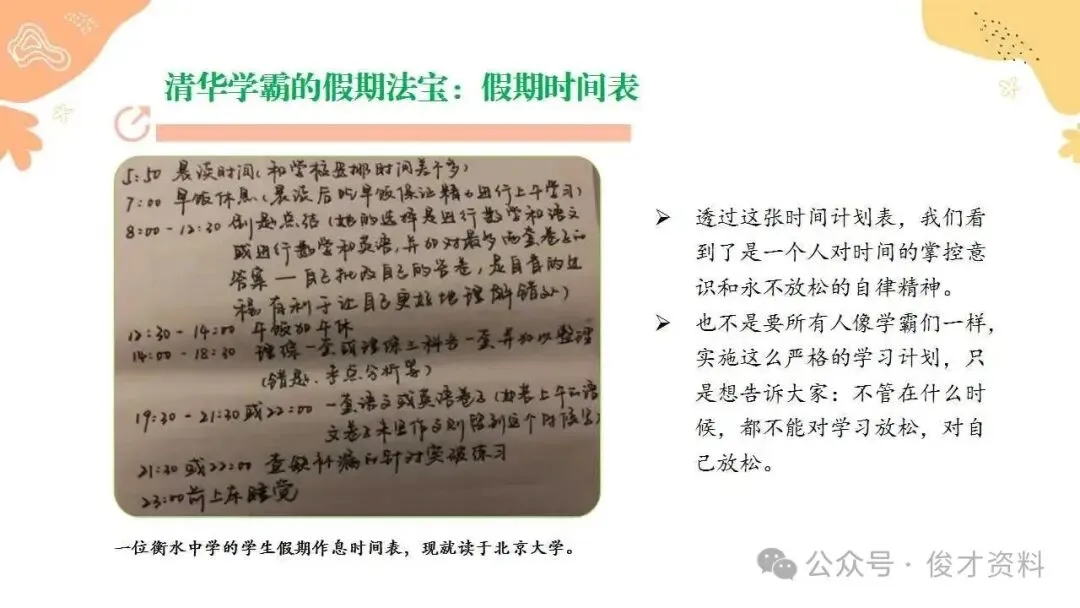 清华学霸的假期法宝：假期时间表
5:50 晨读时间（和学校安排时间差不多）
7:00 早饭休息（晨读后吃早饭保证精力进行上午学习）
8:00-12:30 刷题总结（她的选择是进行数学和语文
或进行数学和英语，并加对最多两套卷子的
答案—自己批改自己的答卷，是自查的过
程 有利于让自己更好地理解错处）
12:30-14:00 午饭加午休
14:00-18:30 理综一套或理综三科各一套并加以整理
（错题、考点分析等）
19:30-21:30或22:00 一套语文或英语卷子（如若上午的语
文卷子未写作文则留到这个时候写）
21:30或22:00 查缺补漏的针对突破练习
23:00前上床睡觉
一位衡水中学的学生假期作息时间表，现就读于北京大学。
透过这张时间计划表，我们看
到了是一个人对时间的掌控意
识和永不放松的自律精神。
也不是要所有人像学霸们一样，
实施这么严格的学习计划，只
是想告诉大家：不管在什么时
候，都不能对学习放松，对自
己放松。
公众号·俊才资料